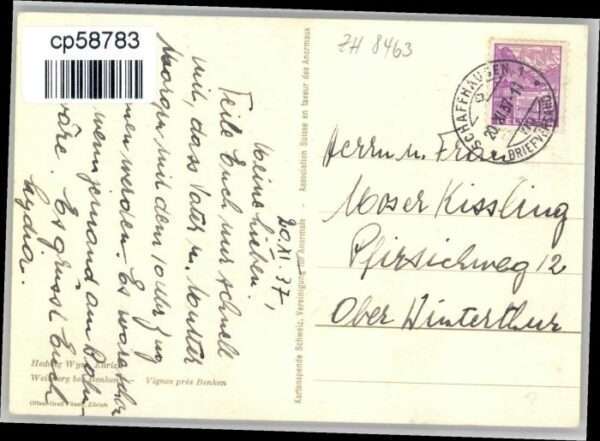 cp58783
ZH 8463
20.XI.37,
Meine Lieben.
Teile Euch nur schnell
mit, dass Vater u. Mutter
Morgen mit dem 10 Uhr Zug
kommen werden. Es wäre schön
wenn jemand am Bahn-
wäre. Es grüsst Euch
Lydia.
SCHAFFHAUSEN 1
20.XI.37
BRIEFVERSAND
Herrn u. Frau
Moser Kissling
Pfirsichweg 12
Ober Winterthur
Kartenspende Schweiz. Vereinigung für Anormale - Association Suisse en faveur des Anormaux
Hedwig Zürich
Weinberg bei Benken
Vignes près Benken
Zürich